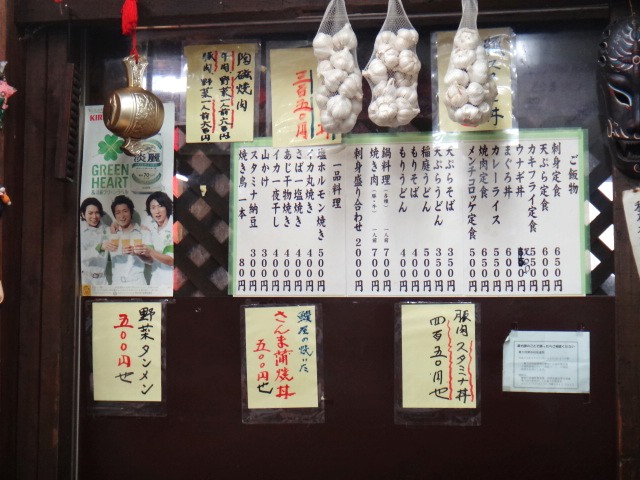 陶磁焼肉
牛肉 野菜 一人前 六百円
豚肉 野菜 一人前 六百円
三百五
丼
KIRIN
淡麗
GREEN
HEART
ご飯物
刺身定食 650
天ぷら定食 650
カキフライ定食 550
ウナギ丼
まぐろ丼 600
カレーライス 500
焼肉定食 650
スタミナ定食 650
メンチコロッケ定食 500
天ぷらそば 350
天ぷらうどん 350
稲庭うどん 500
もりそば 400
もりうどん 400
鍋料理 一人前 700
焼き肉 一人前 700
刺身盛り合わせ 2000
一品料理
塩ホルモン焼き 500
イカ丸焼き 400
さば一塩焼き 400
あじ干物焼き 400
イカ一夜干し 400
山かけ 400
スタミナ納豆 300
焼き鳥一本 80円
野菜タンメン
五〇〇円也
鰻屋の焼いた
さんま蒲焼丼
五〇〇円也
豚肉スタミナ丼
四百五〇円也